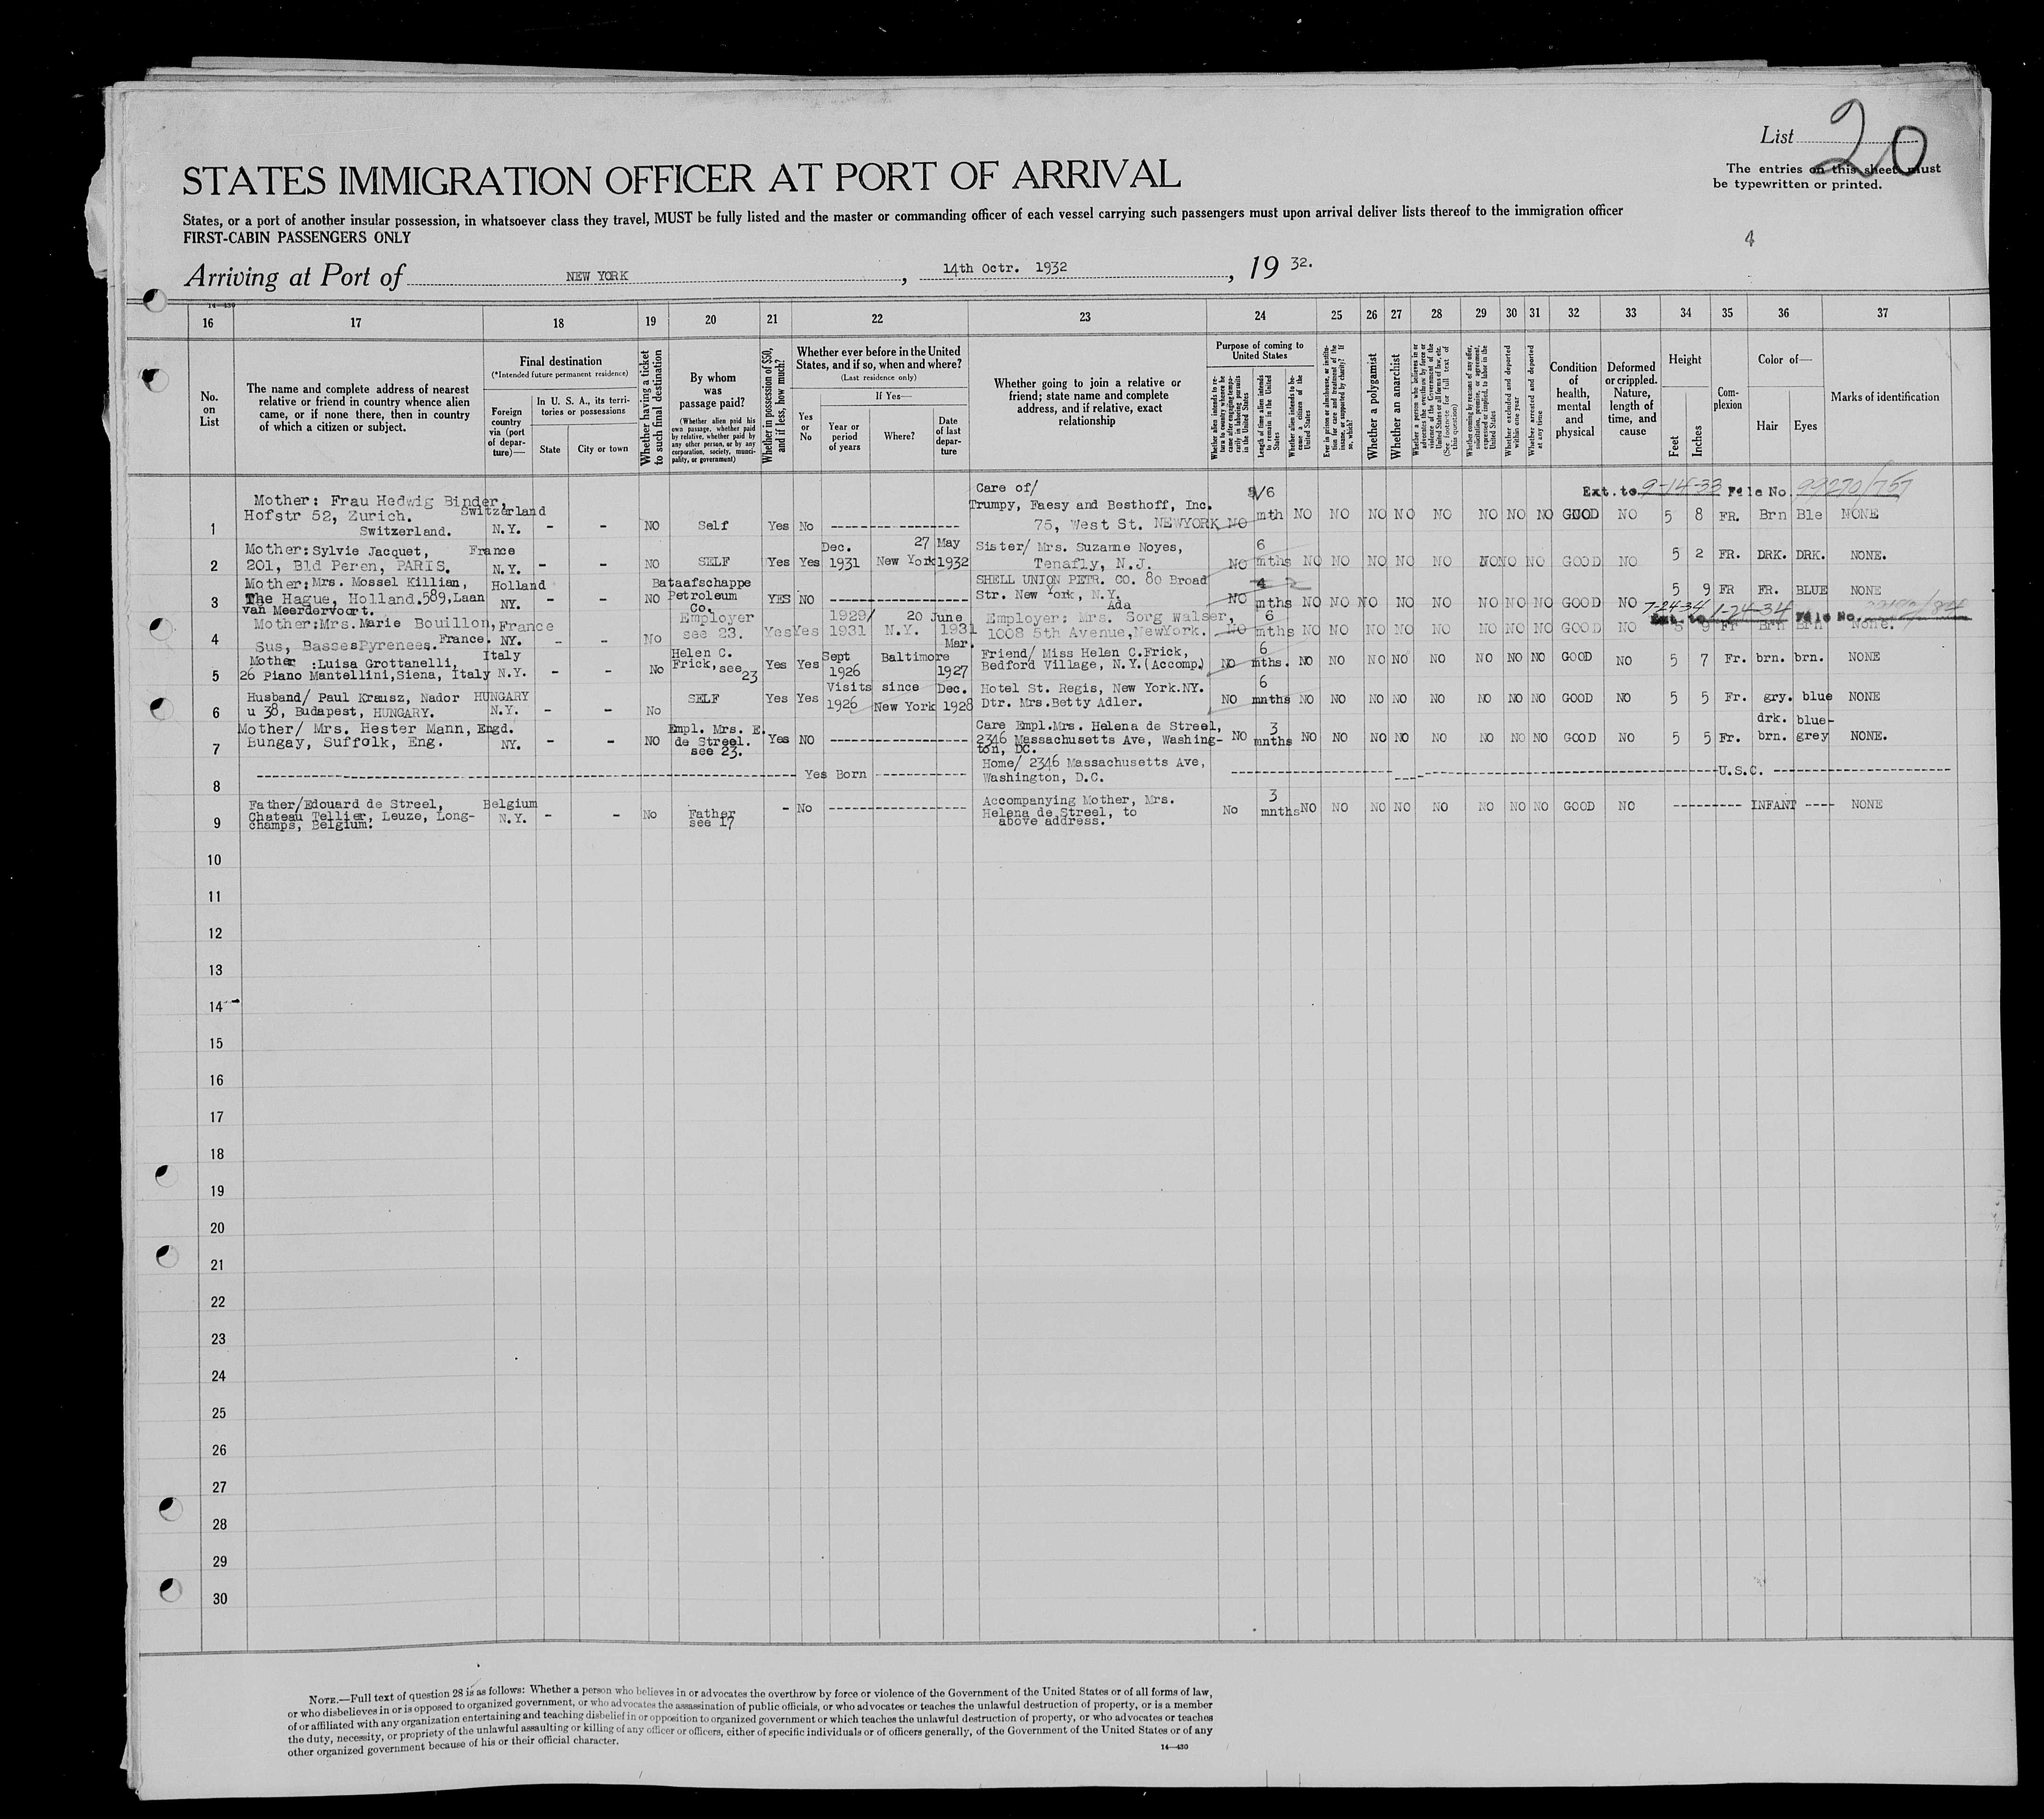 List 20
The entries on this sheet must
be typewritten or printed.
STATES IMMIGRATION OFFICER AT PORT OF ARRIVAL
States, or a port of another insular possession, in whatsoever class they travel, MUST be fully listed and the master or commanding officer of each vessel carrying such passengers must upon arrival deliver lists thereof to the immigration officer
FIRST-CABIN PASSENGERS ONLY
4
Arriving at Port of NEW YORK, 14th Octr. 1932, 19 32.
14-430
16 17 18 19 20 21 22 23 24 25 26 27 28 29 30 31 32 33 34 35 36 37
No. on List
The name and complete address of nearest relative or friend in country whence alien came, or if none there, then in country of which a citizen or subject.
Final destination
(*Intended future permanent residence)
Foreign country via (port of departure)—
In U. S. A., its territories or possessions
State
City or town
Whether having a ticket to such final destination
By whom was passage paid?
(Whether alien paid his own passage, whether paid by relative, whether paid by any other person, or by any corporation, society, municipality, or government)
Whether in possession of $50, and if less, how much?
Whether ever before in the United States, and if so, when and where?
(Last residence only)
Yes or No
If Yes—
Year or period of years
Where?
Date of last departure
Whether going to join a relative or friend; state name and complete address, and if relative, exact relationship
Purpose of coming to United States
Whether alien intends to return to country whence he came after engaging temporarily in laboring pursuits in the United States
Length of time alien intends to remain in the United States
Whether alien intends to become a citizen of the United States
Ever in prison or almshouse, or institution for care and treatment of the insane, or supported by charity? If so, which?
Whether a polygamist
Whether an anarchist
Whether a person who believes in or advocates the overthrow by force or violence of the Government of the United States or all forms of law, etc. (See footnote for full text of this question)
Whether coming by reasons of any offer, solicitation, promise, or agreement, expressed or implied, to labor in the United States
Whether excluded and deported within one year
Whether arrested and deported at any time
Condition of health, mental and physical
Deformed or crippled. Nature, length of time, and cause
Height
Feet
Inches
Complexion
Color of—
Hair
Eyes
Marks of identification
Ext. to 9-14-33 File No. 99270/757
1 Mother: Frau Hedwig Binder, Hofstr 52, Zurich. Switzerland. Switzerland N.Y. - - NO Self Yes No ---------- Care of/ Trumpy, Faesy and Besthoff, Inc. 75, West St. NEWYORK NO /6 mth NO NO NO NO NO NO NO NO GOOD NO 5 8 FR. Brn Ble NONE
2 Mother: Sylvie Jacquet, 201, Bld Peren, PARIS. France N.Y. - - NO SELF Yes Yes Dec. 1931 New York 27 May 1932 Sister/ Mrs. Suzanne Noyes, Tenafly, N.J. NO 6 mths NO NO NO NO NO NO NO NO GOOD NO 5 2 FR. DRK. DRK. NONE.
3 Mother: Mrs. Mossel Killian, The Hague, Holland. 589, Laan van Meerdervoort. Holland NY. - - NO Bataafschappe Petroleum Co. YES NO ---------- SHELL UNION PETR. CO. 80 Broad Str. New York, N.Y. NO 4 2 mths NO NO NO NO NO NO NO NO GOOD NO 5 9 FR FR. BLUE NONE
7-24-34 Ext. to 1-24-34 File No.
4 Mother: Mrs. Marie Bouillon, Sus, BassesPyrenees. France. France NY. - - No Employer see 23. Yes Yes 1929/ 1931 N.Y. 20 June 1931 Employer: Mrs. Ada Sorg Walser, 1008 5th Avenue, NewYork. NO 6 mths NO NO NO NO NO NO NO NO GOOD NO 5 9 Fr Brn Brn None.
5 Mother: Luisa Grottanelli, 26 Piano Mantellini, Siena, Italy Italy N.Y. - - No Helen C. Frick, see 23 Yes Yes Sept 1926 Baltimore Mar. 1927 Friend/ Miss Helen C.Frick, Bedford Village, N.Y. (Accomp.) NO 6 mths. NO NO NO NO NO NO NO NO GOOD NO 5 7 Fr. brn. brn. NONE
6 Husband/ Paul Krausz, Nador u 38, Budapest, HUNGARY. HUNGARY N.Y. - - No SELF Yes Yes Visits since 1926 New York Dec. 1928 Hotel St. Regis, New York.NY. Dtr. Mrs.Betty Adler. NO 6 mnths NO NO NO NO NO NO NO NO GOOD NO 5 5 Fr. gry. blue NONE
7 Mother/ Mrs. Hester Mann, Bungay, Suffolk, Eng. Engd. NY. - - NO Empl. Mrs. E. de Streel. see 23. Yes NO ---------- Care Empl.Mrs. Helena de Streel, 2346 Massachusetts Ave, Washington, DC. NO 3 mnths NO NO NO NO NO NO NO NO GOOD NO 5 5 Fr. drk. brn. blue-grey NONE.
8 ---------- Yes Born ---------- Home/ 2346 Massachusetts Ave, Washington, D.C. ---------- U.S.C. ----------
9 Father/Edouard de Streel, Chateau Tellier, Leuze, Longchamps, Belgium. Belgium N.Y. - - No Father see 17 - No ---------- Accompanying Mother, Mrs. Helena de Streel, to above address. No 3 mnths NO NO NO NO NO NO NO NO GOOD NO ---------- INFANT ---- NONE
10
11
12
13
14
15
16
17
18
19
20
21
22
23
24
25
26
27
28
29
30
NOTE.—Full text of question 28 is as follows: Whether a person who believes in or advocates the overthrow by force or violence of the Government of the United States or of all forms of law,
or who disbelieves in or is opposed to organized government, or who advocates the assassination of public officials, or who advocates or teaches the unlawful destruction of property, or is a member
of or affiliated with any organization entertaining and teaching disbelief in or opposition to organized government or which teaches the unlawful destruction of property, or who advocates or teaches
the duty, necessity, or propriety of the unlawful assaulting or killing of any officer or officers, either of specific individuals or of officers generally, of the Government of the United States or of any
other organized government because of his or their official character.
14-430